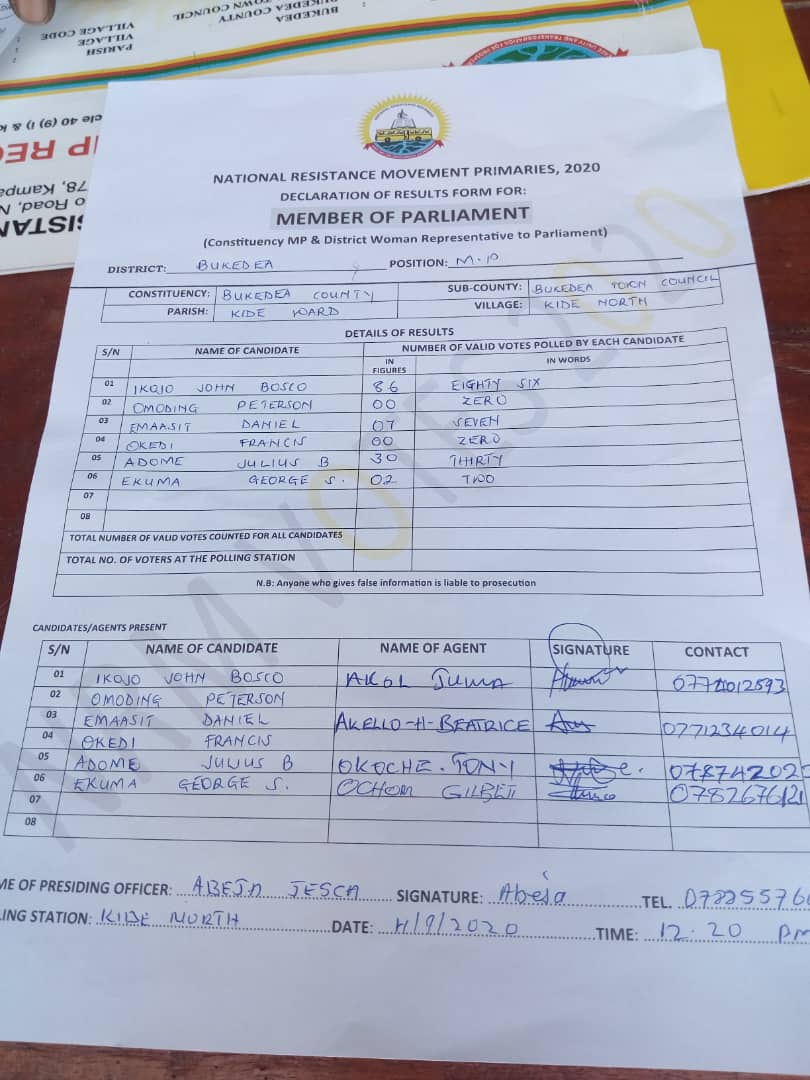 BUKEDEA TOWN COUNCIL
BUKEDEA COUNTY
BUKEDEA
PARISH :
VILLAGE :
VILLAGE CODE :
cle 40 (9) 1) &
P RE
78, Kampa
o Road, N
ISTAN
NATIONAL RESISTANCE MOVEMENT PRIMARIES, 2020
DECLARATION OF RESULTS FORM FOR:
MEMBER OF PARLIAMENT
(Constituency MP & District Woman Representative to Parliament)
DISTRICT: BUKEDEA POSITION: M.P
CONSTITUENCY: BUKEDEA COUNTY SUB-COUNTY: BUKEDEA TOWN COUNCIL
PARISH: KIDE WARD VILLAGE: KIDE NORTH
DETAILS OF RESULTS
S/N NAME OF CANDIDATE NUMBER OF VALID VOTES POLLED BY EACH CANDIDATE
IN FIGURES IN WORDS
01 IKOJO JOHN BOSCO 86 EIGHTY SIX
02 OMODING PETERSON 00 ZERO
03 EMAASIT DANIEL 07 SEVEN
04 OKEDI FRANCIS 00 ZERO
05 ADOME JULIUS B 30 THIRTY
06 EKUMA GEORGE S. 02 TWO
07
08
TOTAL NUMBER OF VALID VOTES COUNTED FOR ALL CANDIDATES
TOTAL NO. OF VOTERS AT THE POLLING STATION
N.B: Anyone who gives false information is liable to prosecution
NRM VOTES 2020
CANDIDATES/AGENTS PRESENT
S/N NAME OF CANDIDATE NAME OF AGENT SIGNATURE CONTACT
01 IKOJO JOHN BOSCO AKOL JUMA
02 OMODING PETERSON
03 EMAASIT DANIEL AKELLO-H-BEATRICE 0771234014
04 OKEDI FRANCIS
05 ADOME JULIUS B OKOCHE. TONY 078742020
06 EKUMA GEORGE S. OCHOM GILBET 0782676121
07
08
ME OF PRESIDING OFFICER: ABEJA JESCA SIGNATURE: Abeja TEL. 078255766
LING STATION: KIDE NORTH DATE: 4/9/2020 TIME: 12.20 PM